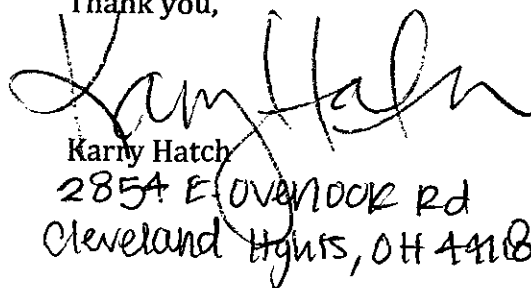 Thank you,
Karry Hatch
2854 E Overlook Rd
Cleveland Hghts, OH 44118